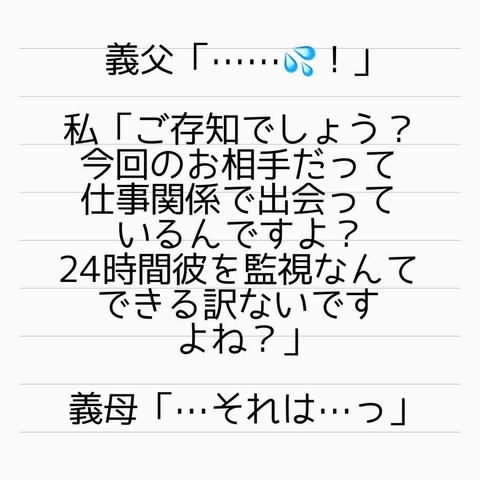 義父「……💦！」
私「ご存知でしょう？
今回のお相手だって
仕事関係で出会って
いるんですよ？
24時間彼を監視なんて
できる訳ないです
よね？」
義母「…それは…っ」